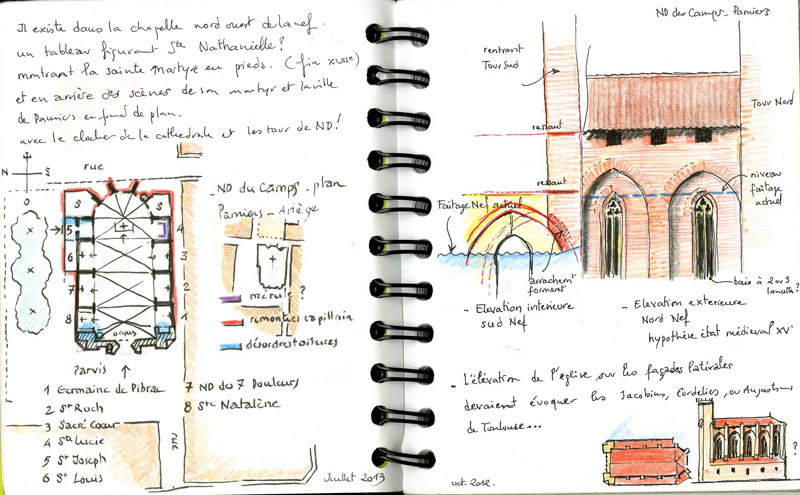 Il existe dans la chapelle nord ouest de la nef.
un tableau figurant Ste Nathanielle?
montrant la sainte Martyre en pieds. (fin XVIIIe)
et en arrière des scènes de son martyr et la ville
de Pamiers en fond de plan.
avec le clocher de la cathedrale et les tour de ND!
N
S
O
rue
S
S
5
4
6
3
7
2
8
1
orgues
Parvis
rue
_ ND du Camps_plan
Pamiers_Ariège
mérule ?
remontées capillaires
désordres toitures
1 Germaine de Pibrac
2 St Roch
3 Sacré Coeur
4 Sta Lucie
5 St Joseph
6 St Louis
7 ND des 7 Douleurs
8 Ste Natalène
Juillet 2013
ND des Camps_ Pamiers
rentrant
Tour Sud
ressaut
ressaut
Tour Nord
niveau
faîtage
actuel
Faîtage Nef actuel
arrachement
forment
baie à 2 ou 3
lancettes?
- Elevation interieure
sud Nef
- Elevation exterieure
Nord Nef
hypothèse état médieval XVe
- L'élévation de l'eglise sur les façades latérales
devraient évoquer les Jacobins, Cordeliers, ou Augustins
de Toulouse...
?
oct. 2012.